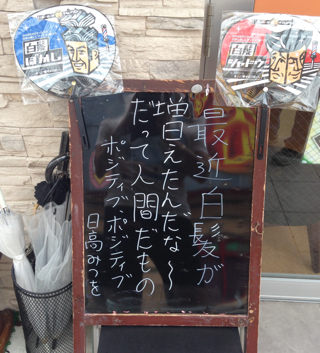 白髪
ぼかし
白髪
シャドウ
最近白髪が
増白えたんだな〜
だって人間だもの
ポジティブ、ポジティブ
日高みつを